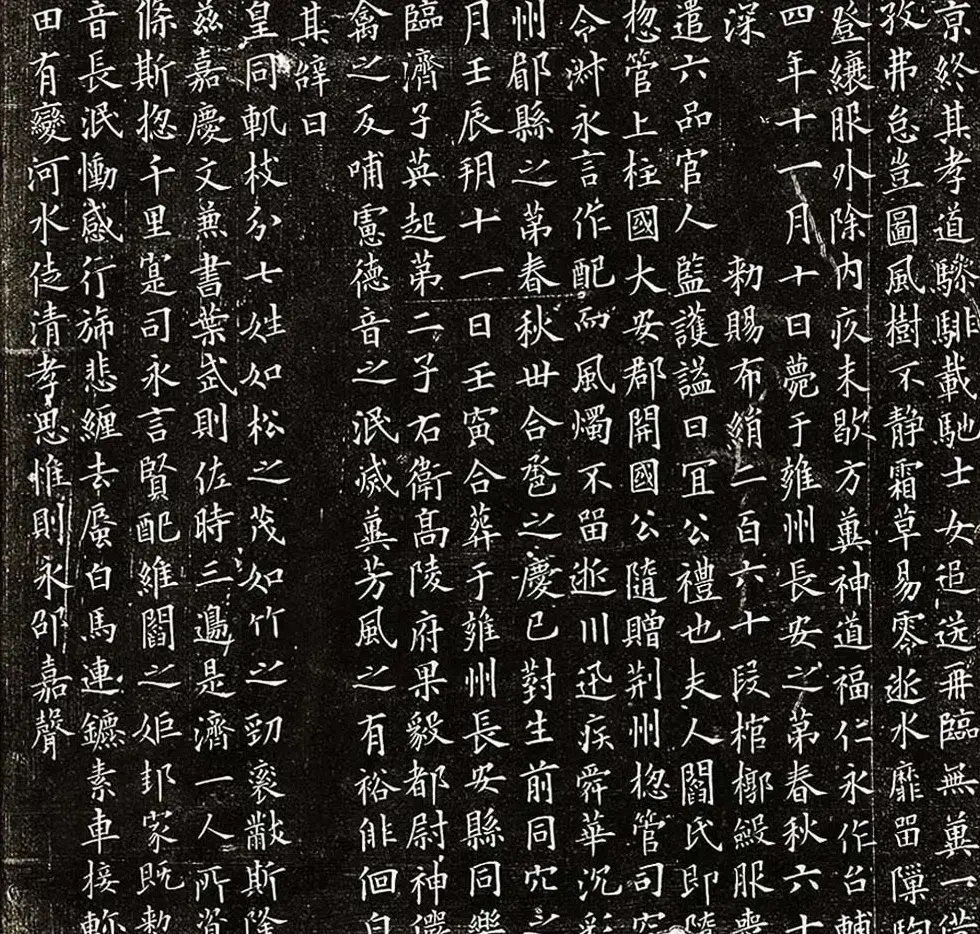 京終其孝道驂騑載馳士女追送冊臨無冀一
孜弗怠豈圖風樹不靜霜草易零逝水靡留隟駒
登纕服外除內疚未歇方冀神道福仁永作台輔
四年十一月十日薨于雍州長安之第春秋六十
深 勑賜布絹二百六十段棺槨殮服喪
遣六品官人監護謚曰宜公禮也夫人閻氏即隨
惣管上柱國大安郡開國公隨贈荊州惣管司空
令淋永言作配而風燭不留逝川迅疾舜華沉彩
州郿縣之第春秋卌合巹之慶已對生前同穴之
月壬辰朔十一日壬寅合葬于雍州長安縣同樂
臨濟子英起第二子右衛高陵府果毅都尉神儼
禽之反哺憲德音之泯滅冀芳風之有裕俳佪白
其辭曰
皇同軌枝分七姓如松之茂如竹之勁袞黻斯隆
茲嘉慶文兼書葉武則佐時三邊是濟一人所資
儵斯惣千里寔司永言賢配維閻之姬邦家既勑
音長泯慟感行旆悲纏去蜃白馬連鑣素車接軫
田有變河水徒清孝思惟則永邵嘉聲